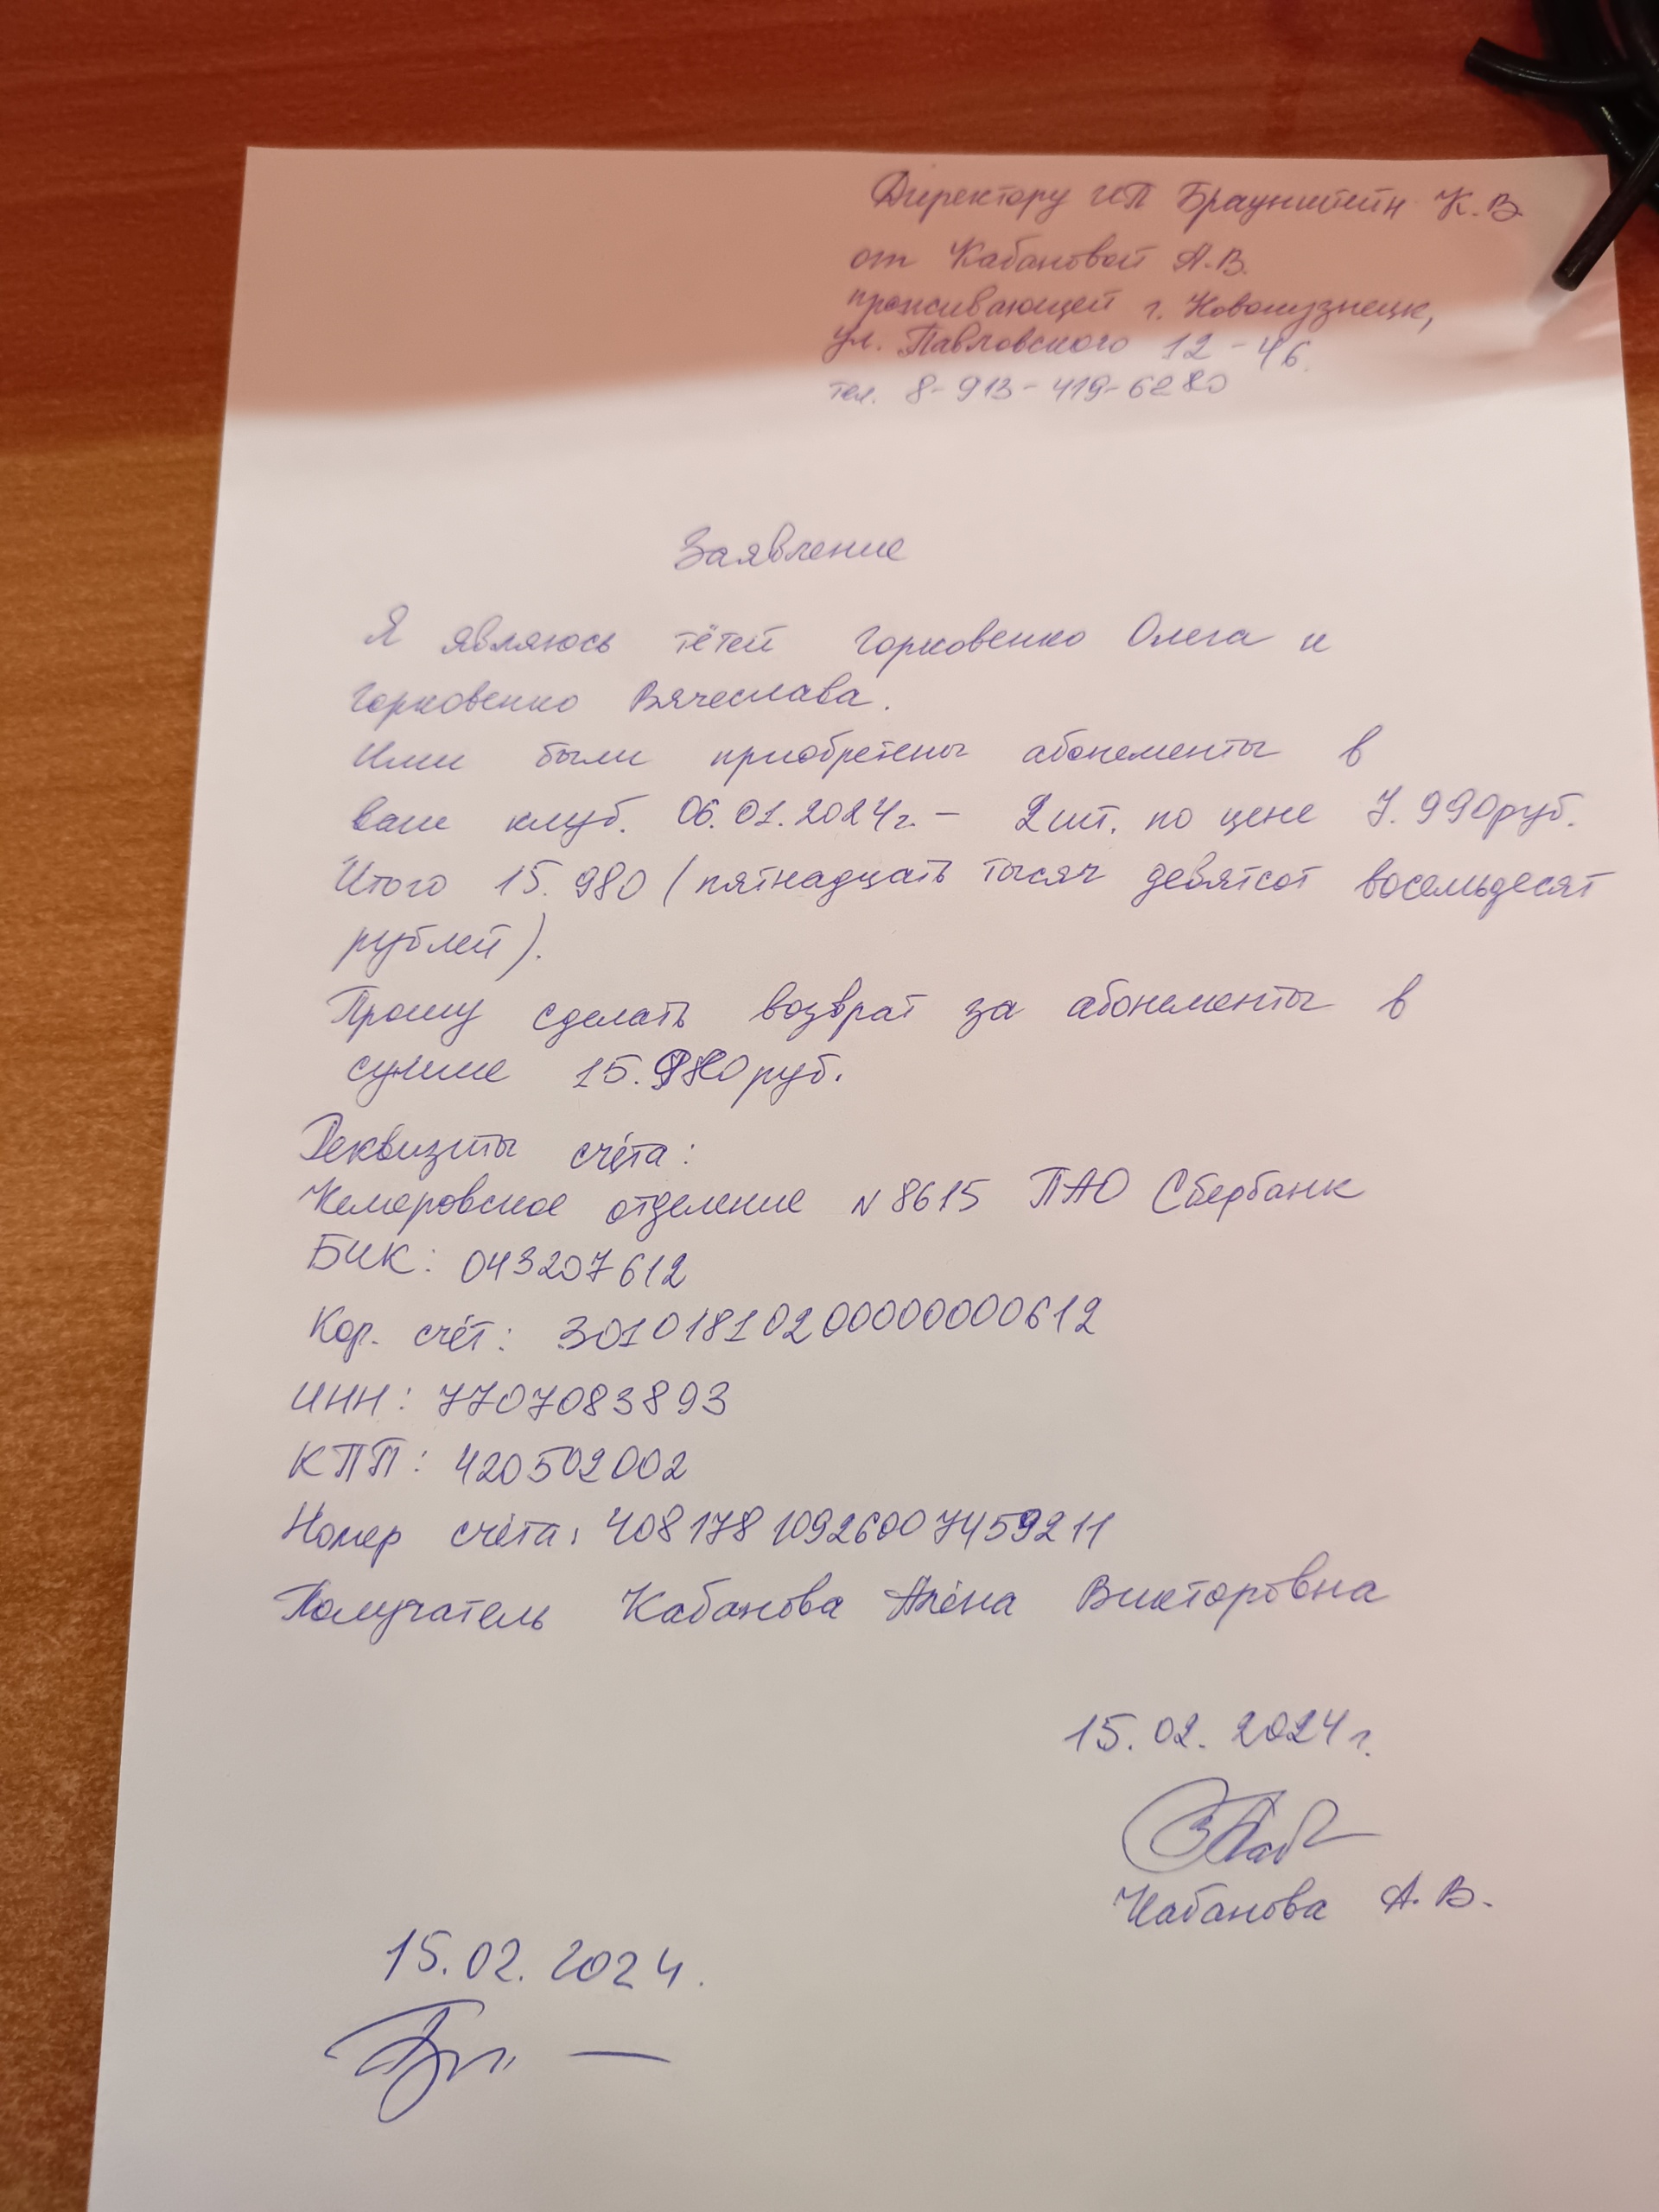 Директору ИП Браунштейн К.В.
от Кабановой А.В.
проживающей г. Новокузнецк,
ул. Павловского 12-46.
тел. 8-913-419-6280
Заявление
Я являюсь тётей Горковенко Олега и
Горковенко Вячеслава.
Ими были приобретены абонементы в
ваш клуб. 06.01.2024г. – 2шт. по цене 7.990руб.
Итого 15.980 (пятнадцать тысяч девятсот восемьдесят
рублей).
Прошу сделать возврат за абонементы в
сумме 15.980руб.
Реквизиты счёта:
Кемеровское отделение N8615 ПАО Сбербанк
БИК: 043207612
Кор. счёт: 30101810200000000612
ИНН: 7707083893
КПП: 420502002
Номер счёта: 40817810926007459211
Получатель Кабанова Алёна Викторовна
15.02.2024г.
Кабанова А.В.
15.02.2024.